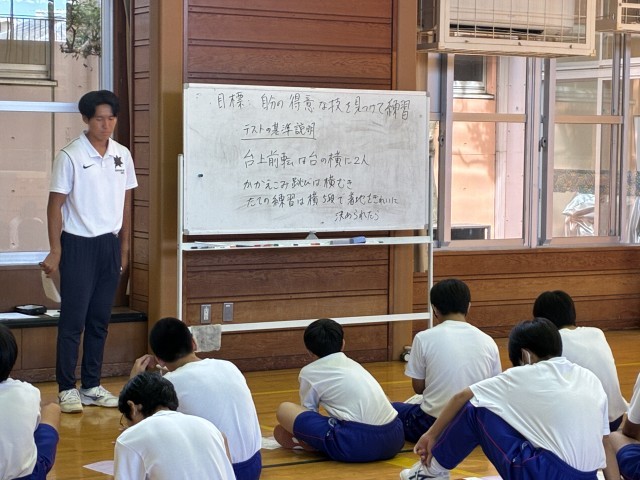 目標 自分の得意な技を見つけて練習
テストの基準説明
台上前転は台の横に2人
かかえこみ跳びは横むき
たての練習は横4段で着地をきれいに
決められたら